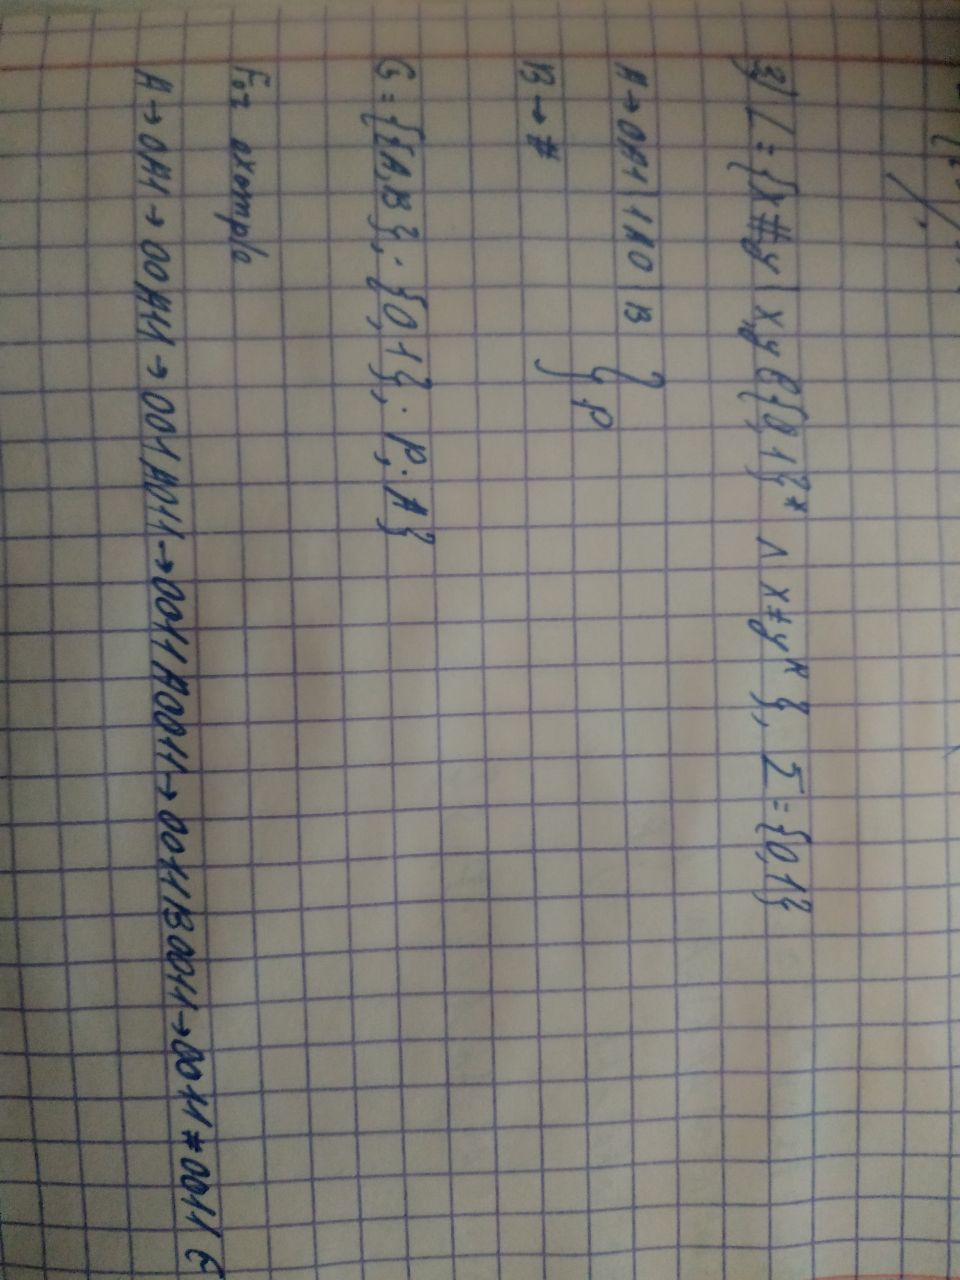 2) L = {x#y | xy ∈ {0,1}* ∧ x≠yᴿ}, Σ = {0,1}
A → 0A1 | 1A0 | B
B → # } P
G = {{A,B}; {0,1}; P; A}
For example
A → 0A1 → 00A11 → 001A011 → 0011A0011 → 0011B0011 → 0011#0011 ∈